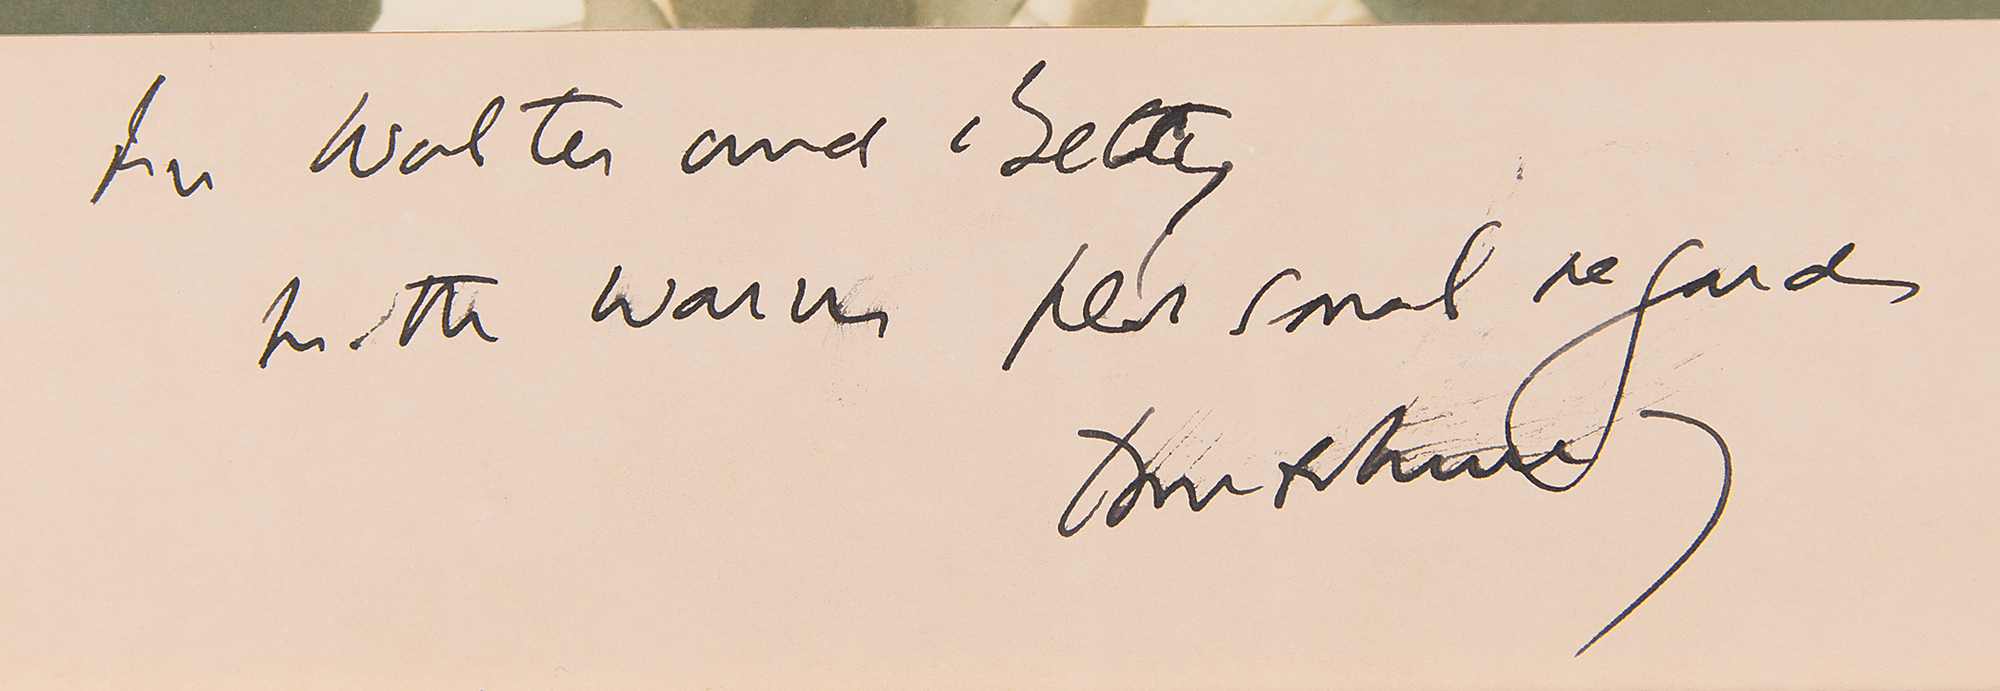 For Walter and Betty
with warm personal regards